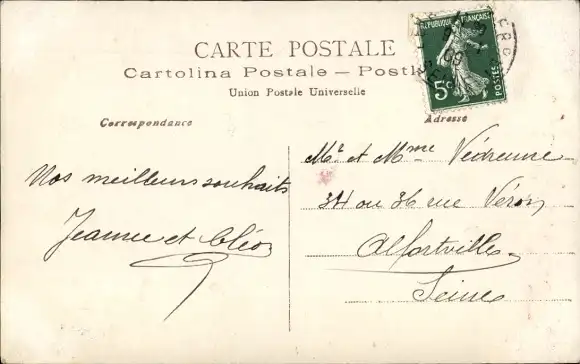 CARTE POSTALE
Cartolina Postale — Postk
Union Postale Universelle
REPUBLIQUE FRANÇAISE
5c POSTES
Correspondance
Adresse
Nos meilleurs souhaits
Jeanne et Cléo
Mr et Mme Védrenne
34 ou 36 rue Véron
Alfortville
Seine